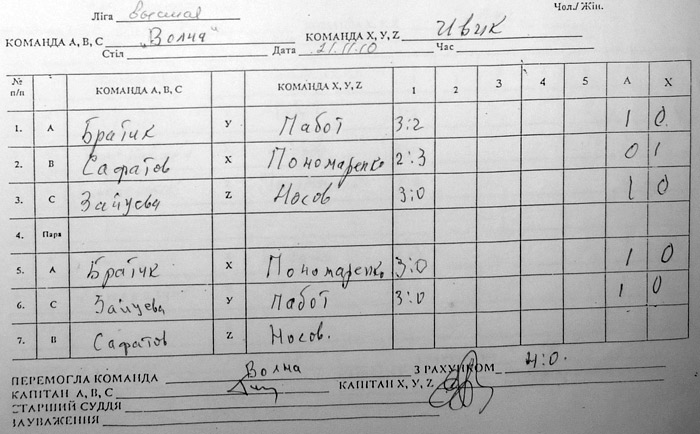 Ліга высшая Чол./ Жін.
КОМАНДА А, В, С "Волна" КОМАНДА X, Y, Z Ивик
Стіл Дата 21.11.10 Час
№ п/п КОМАНДА А, В, С КОМАНДА X, Y, Z 1 2 3 4 5 А X
1. А Братик У Пабот 3:2 1 0
2. В Сафатов X Пономаренко 2:3 0 1
3. С Зайцева Z Носов 3:0 1 0
4. Пара
5. А Братик X Пономаренко 3:0 1 0
6. С Зайцева У Пабот 3:0 1 0
7. В Сафатов Z Носов.
ПЕРЕМОГЛА КОМАНДА Волна З РАХУНКОМ 4:0.
КАПІТАН А, В, С КАПІТАН X, У, Z
СТАРШИЙ СУДДЯ
ЗАУВАЖЕННЯ